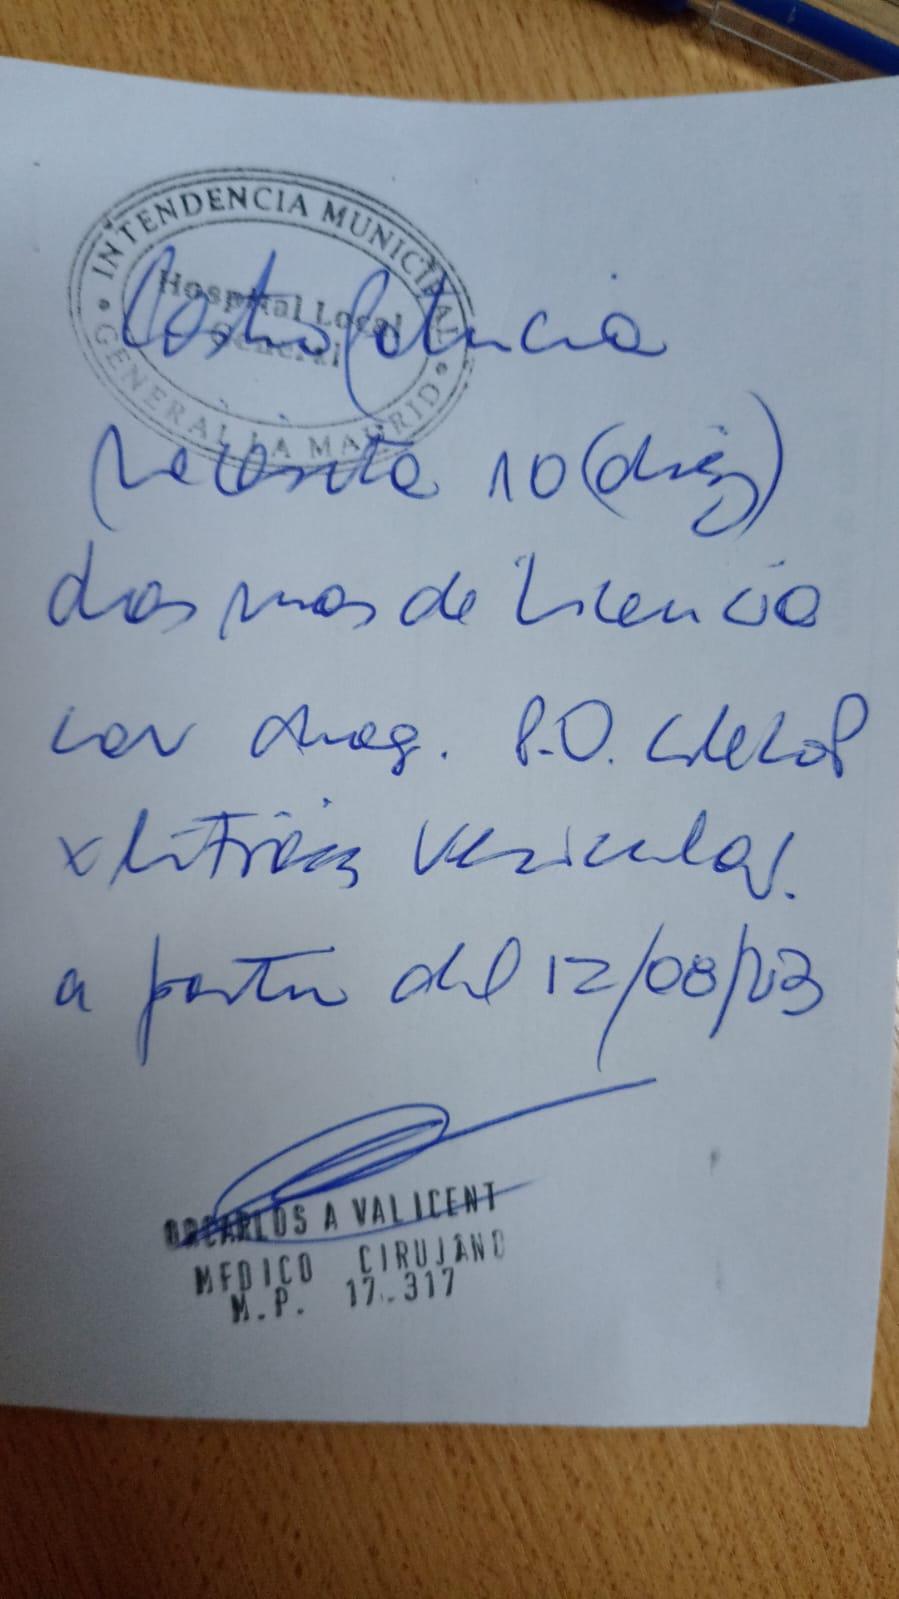 INTENDENCIA MUNICIPAL
Hospital Local
General
GENERAL LA MADRID
Castro
necesita 10 (diez)
dias mas de licencia
con diag. P.O.
x litiasis vesicular.
a partir del 12/08/23
DR CARLOS A VALICENT
MEDICO CIRUJANO
M.P. 17.317